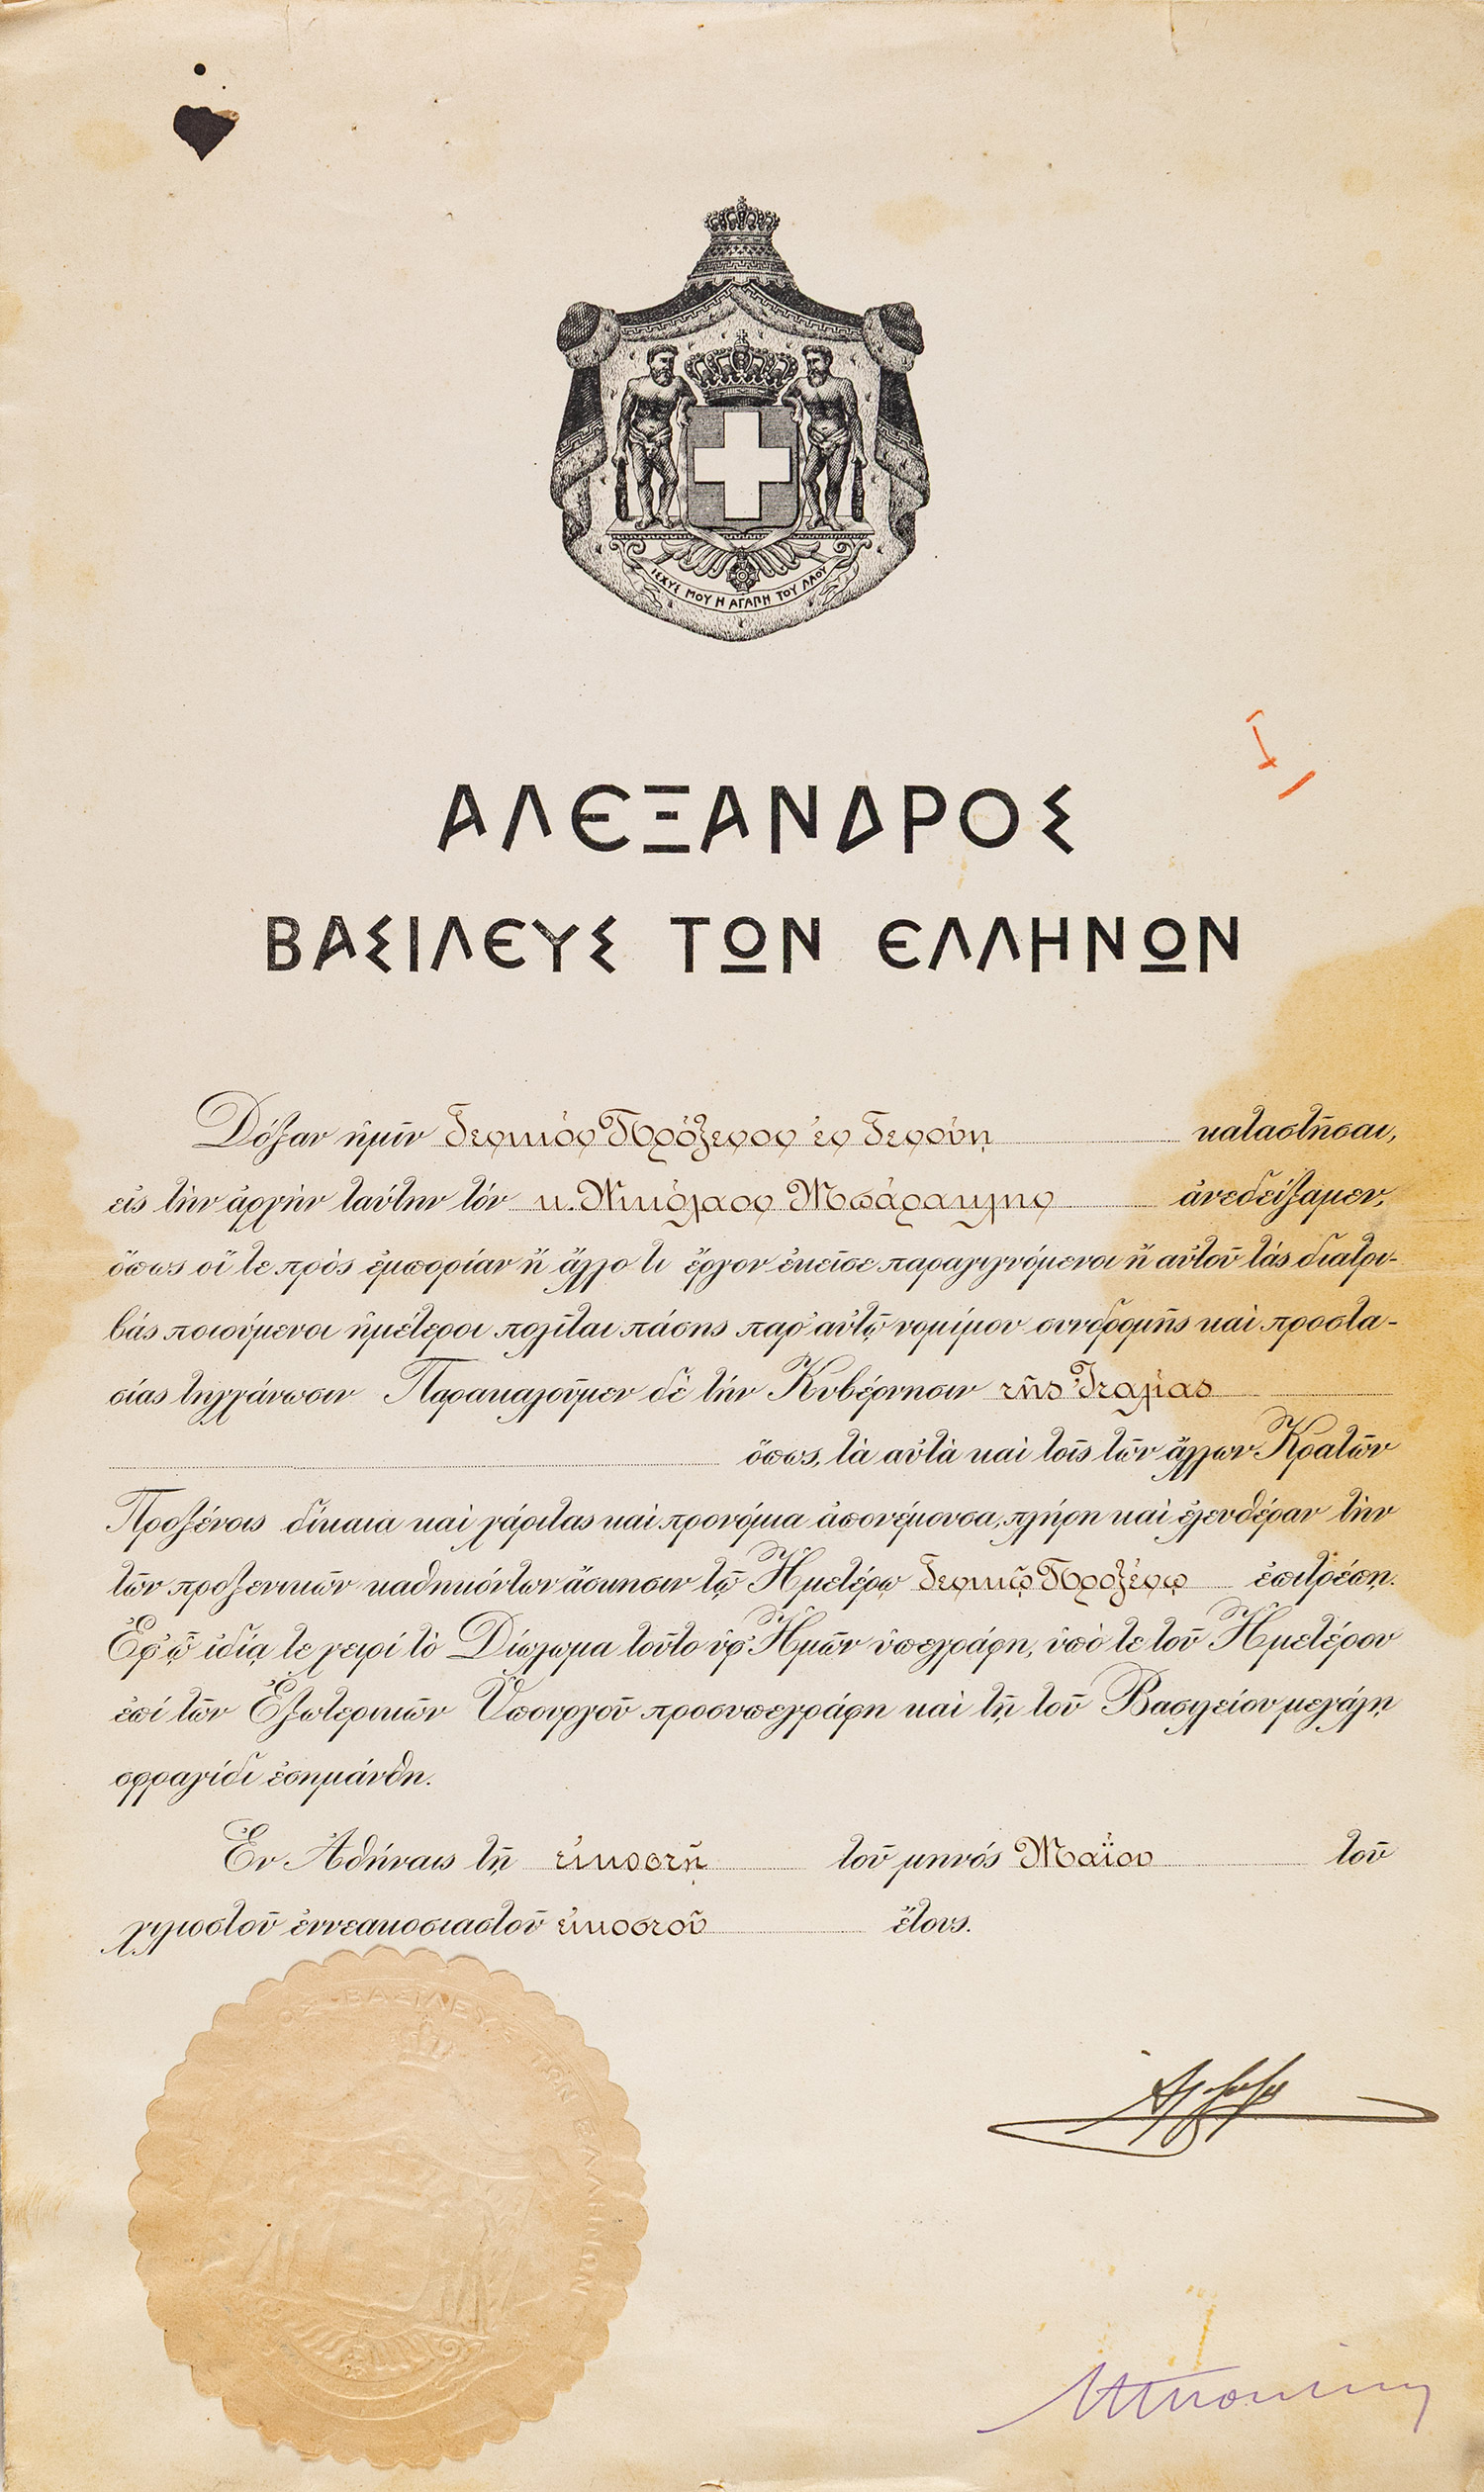 ΙΣΧΥΣ ΜΟΥ Η ΑΓΑΠΗ ΤΟΥ ΛΑΟΥ
ΑΛΕΞΑΝΔΡΟΣ
ΒΑΣΙΛΕΥΣ ΤΩΝ ΕΛΛΗΝΩΝ
Δόξαν ἡμῖν Γενικὸν Πρόξενον ἐν Γενούῃ καταστῆσαι,
εἰς τὴν ἀρχὴν ταύτην τόν κ. Νικόλαον Μπάρακλην ἀνεδείξαμεν,
ὅπως οἵ τε πρὸς ἐμπορίαν ἢ ἄλλο τι ἔργον ἐκεῖσε παραγιγνόμενοι ἢ αὐτοῦ τὰς διατρι-
βάς ποιούμενοι ἡμέτεροι πολῖται πάσης παρ' αὐτῷ νομίμου συνδρομῆς καὶ προστα-
σίας τυγχάνωσιν Παρακαλοῦμεν δὲ τὴν Κυβέρνησιν τῆς Ἰταλίας
ὅπως, τὰ αὐτὰ καὶ τοῖς τῶν ἄλλων Κρατῶν
Προξένοις δίκαια καὶ χάριτας καὶ προνόμια ἀπονέμουσα, πλήρη καὶ ἐλευθέραν τὴν
τῶν προξενικῶν καθηκόντων ἄσκησιν τῷ Ἡμετέρῳ Γενικῷ Προξένῳ ἐπιτρέπῃ.
Ἐφ' ᾧ ἰδίᾳ τε χειρί τὸ Δίπλωμα τοῦτο ὑφ' Ἡμῶν ὑπεγράφη, ὑπὸ τε τοῦ Ἡμετέρου
ἐπί τῶν Ἐξωτερικῶν Ὑπουργοῦ προσυπεγράφη καὶ τῇ τοῦ Βασιλείου μεγάλῃ
σφραγίδι ἐσημάνθη.
Ἐν Ἀθήναις τῇ εἰκοστῇ τοῦ μηνός Μαΐου τοῦ
χιλιοστοῦ ἐννεακοσιαστοῦ εἰκοστοῦ ἔτους.
ΟΣ ΒΑΣΙΛΕΥΣ ΤΩΝ ΕΛΛΗΝΩΝ